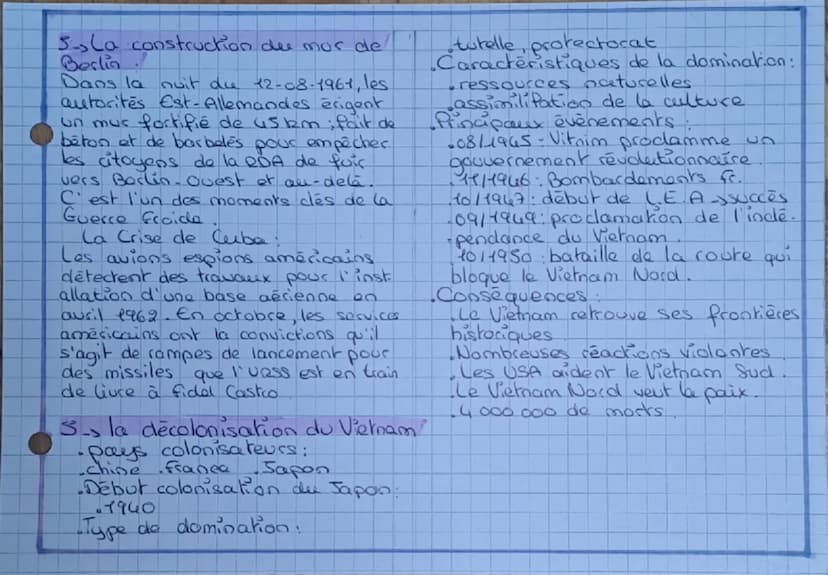 5→La construction du mur de
Berlin :
Dans la nuit du 12-08-1961, les
autorités Est-Allemandes érigent
un mur fortifié de 45 km ; fait de
béton et de barbelés pour empêcher
les citoyens de la RDA de fuir
vers Berlin-Ouest et au-delà.
C'est l'un des moments clés de la
Guerre Froide.
La Crise de Cuba :
Les avions espions américains
détectent des travaux pour l'inst
allation d'une base aérienne en
avril 1962. En octobre, les services
américains ont la convictions qu'il
s'agit de rampes de lancement pour
des missiles que l'URSS est en train
de livre à fidel Castro
5→la décolonisation du Vietnam
.pays colonisateurs :
.chine .france .Japon
.Début colonisation du Japon :
.1940
.Type de domination :
.tutelle, protectorat
.Caractéristiques de la domination :
.ressources naturelles
.assimilitation de la culture
.Principaux évènements :
.08/1945 - Vitnim proclamme un
gouvernement révolutionnaire.
.11/1946 : Bombardements fr.
.10/1947 : début de L.E.A →succès
.09/1949 : proclamation de l'indé-
-pendance du Vietnam.
.10/1950 : bataille de la route qui
bloque le Vietnam Nord.
.Conséquences :
.Le Vietnam retrouve ses frontières
historiques
.Nombreuses réactions violentes
.Les USA aident le Vietnam Sud.
.Le Vietnam Nord veut la paix.
.4 000 000 de morts.